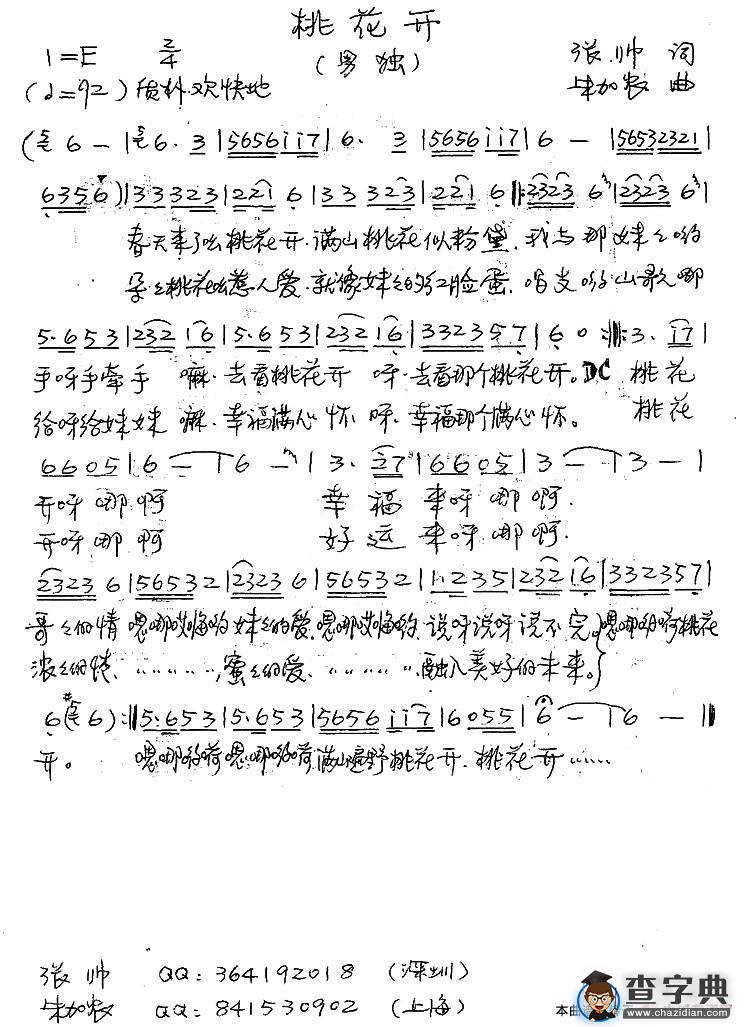 桃花开
1=E 2/4 (男独) 张帅 词
(♩=92) 质朴.欢快地 朱加农 曲
(6 - | 6· 3 | 5656 i i 7 | 6· 3 | 5656 i i 7 | 6 - | 56532321 |
6356) | 33323 | 221 6 | 33 323 | 221 6 |: 2323 6 | 2323 6 |
春天来了么桃花开.满山桃花似粉黛.我与那妹々哟
朵々桃花惹人爱.就像妹々的红脸蛋.唱支哟山歌哪
5·653 | 232 16 | 5·653 | 232 16 | 332357 | 6 0 :|: 3· i7 |
手呀手牵手 嘛.去看桃花开 呀.去看那个桃花开。DC 桃花
给呀给妹妹 嘛.幸福满心怀 呀.幸福那个满心怀。 桃花
6605 | 6 - | 6 - | 3· i7 | 6605 | 3 - | 3 - |
开呀哪啊 幸福来呀哪啊.
开呀哪啊 好运来呀哪啊.
2323 6 | 56532 | 2323 6 | 56532 | 1·235 | 232 16 | 332357 |
哥々的情 嗯哪哎 哟妹々的爱.嗯哪哎 哟.说呀说呀说不完。嗯哪哟嗬桃花
浓々的情、………,蜜々的爱、………融入美好的未来。}
6 (6) :| 5·653 | 5·653 | 5656 i i 7 | 6055 | 6 - | 6 - ‖
开。 嗯哪哟嗬嗯哪哟嗬满山遍野桃花开.桃花开……
张帅 QQ：364192018 (深圳)
朱加农 QQ：841530902 (上海)
本曲
查字典
www.chazidian.com